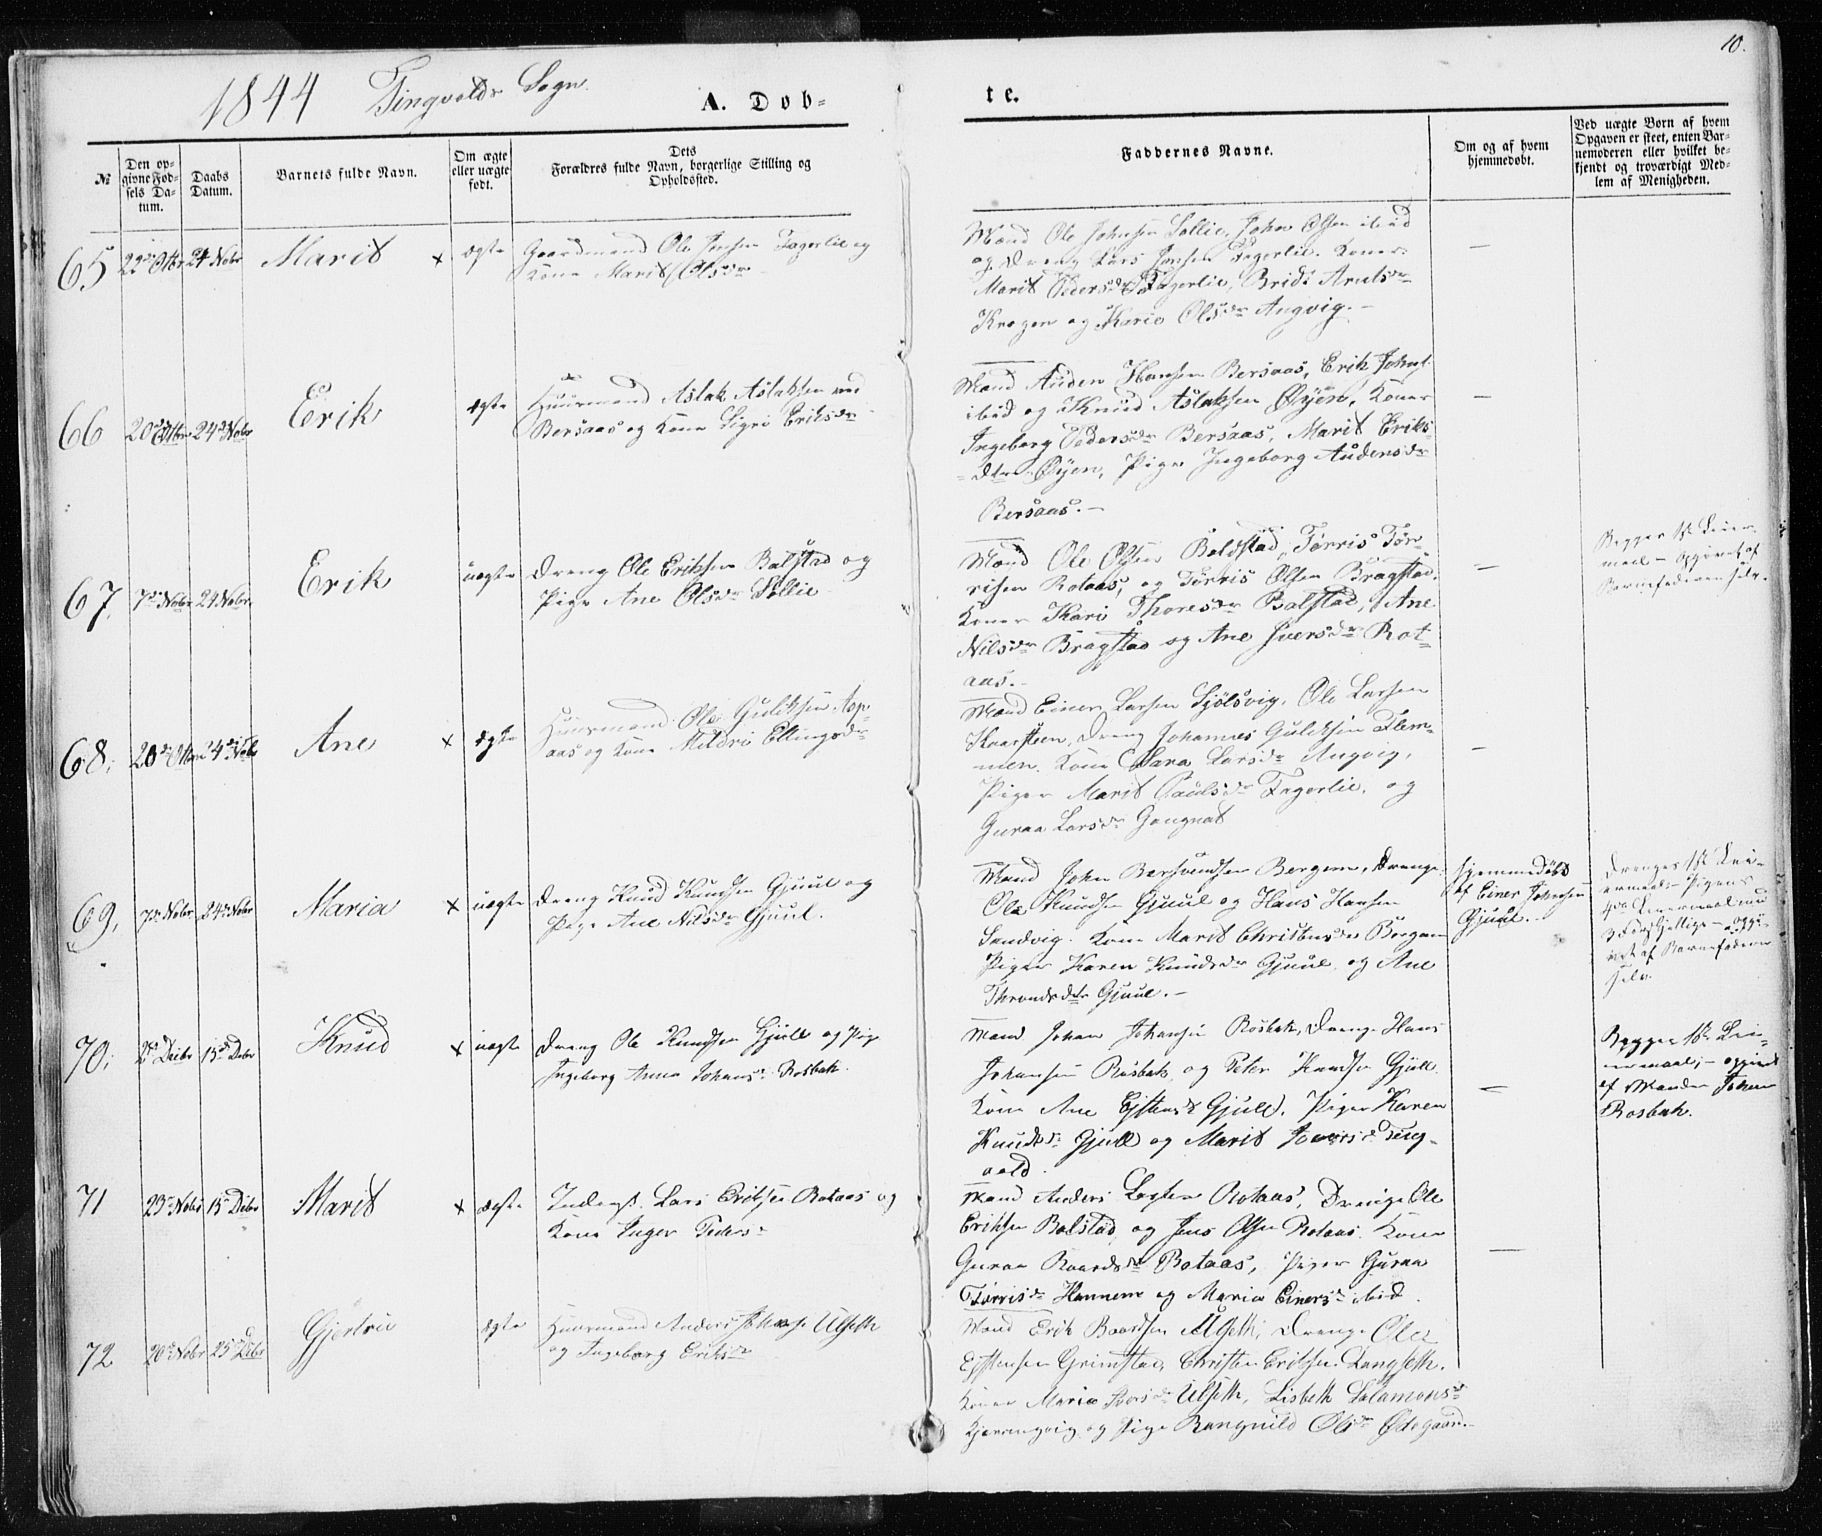 10.
1844 Tingvolds Sogn.
A. Dob-
te.
№
Den op-
givne Fød-
sels Da-
tum.
Daabs
Datum.
Barnets fulde Navn.
Om ægte
eller uægte
født.
Dets
Forældres fulde Navn, borgerlige Stilling og
Opholdssted.
Faddernes Navne.
Om og af hvem
hjemmedøbt.
Ved uægte Børn af hvem
Opgaven er skeet, enten Bar-
nemoderen eller hvilket be-
kjendt og troværdigt Med-
lem af Menigheden.
65 22de Octbr 24 Novbr Marit × ægte
Gaardmand Ole Jonsen Fagerlie og
Kone Marit Olsdr
Mænd Ole Johnsen Sollie, John Olsen ibid
og Dreng Lars Jonsen Fagerlie. Koner:
Marit Pedersdr Fagerlie, Bridt Arntsdr
Krogen og Kario Olsdr Angvig. —
—
66 20de Octbr 24de Novbr Erik ægte
Huusmand Aslak Aslaksen ved
Bersaas og Kone Sigri Eriksdr
Mænd Auden Hansen Bersaas, Erik
ibid og Knud Aslaksen Øyen, Koner
Ingeborg Pedersdr Bersaas, Marit Eriks-
dtr Øyen, Pige Ingeborg Audensdr
Bersaas. —
—
67. 7de Novbr 24 Novbr. Erik uægte
Dreng Ole Eriksen Balstad og
Pige Ane Olsdr Sollie
Mænd Ole Olsen Boldstad, Tørris Tør-
risen Rotaas, og Tørris Olsen Bragstad.
Koner Kari Thoresdr Balstad, Ane
Nilsdr Bragstad og Ane Iversdr Rot-
aas. —
—
Begges 1ste Leier-
maal — opgivet af
Barnefaderen selv.
68. 20de Octbr 24de Novbr Ane × ægte
Huusmand Ole Guldksen Asp-
aas og Kone Mildri Ellingsdr
Mænd Einer Larsen Sjølsvig, Ole Larsen
Kaarsteen, Dreng Johannes Guldksen Flem-
men. Kone Sara Larsdr Angvig,
Piger Marit Paulsdr Fagerlie, og
Guraa Larsdr Gangnat
—
69. 7de Novbr 24de Novbr Maria × uægte
Dreng Knud Knudsen Gjuul og
Pige Ane Nilsdr Gjuul.
Mænd John Bersvendsen Bergem, Drenge
Ole Knudsen Gjuul og Hans Hansen
Sandvig. Kone Marit Christensdr Bergem
Piger Karen Knudsdr Gjuul og Ane
Throndsdtr Gjuul. —
Hjemmedøbt
af Einer Johnsen
Gjuul. —
Drenges 1ste Lei-
ermaal — Pigens
4de Leiermaal med
3 forskjellige — opgi-
vet af Barnefaderen
selv.
70. 2de Decbr 15de Decbr Knud × uægte
Dreng Ole Knudsen Gjull og Pige
Ingeborg Anna Johansdr Rosbak.
Mænd Johan Johansen Rosbak, Drenge Hans
Johansen Rosbak og Peter Knudsen Gjull.
Kone Ane Estensdr Gjull, Piger Karen
Knudsdr Gjull og Marit Iversdr Ting-
vold.
—
Begges 1ste Lei-
ermaal, — opgivet
af Manden Johan
Rosbak.
71 23de Novbr 15de Decbr Marit × ægte
Inderst Lars Eriksen Rotaas og
Kone Inger Pedersdr
Mænd Anders Rotaas, Drenge Ole
Eriksen Balstad og Jens Olsen Rotaas. Kone
Guraa Baardsdr Rotaas, Piger Guraa
Tørrisdr Hannem og Maria Einersdr ibid.
—
72 20de Novbr 25de Decbr Gjertrud ægte
Huusmand Anders Johns. Ulseth
og Ingeborg Eriksdr
Mænd Erik Baardsen Ulseth, Drenge Ole
Estensen Grimstad, Christen Eriksen Langseth.
Koner Maria Iversdr Ulseth, Lisbeth Salamonsdr
Kjørringvig og Pige Rangnild Olsdr Ødegaard.